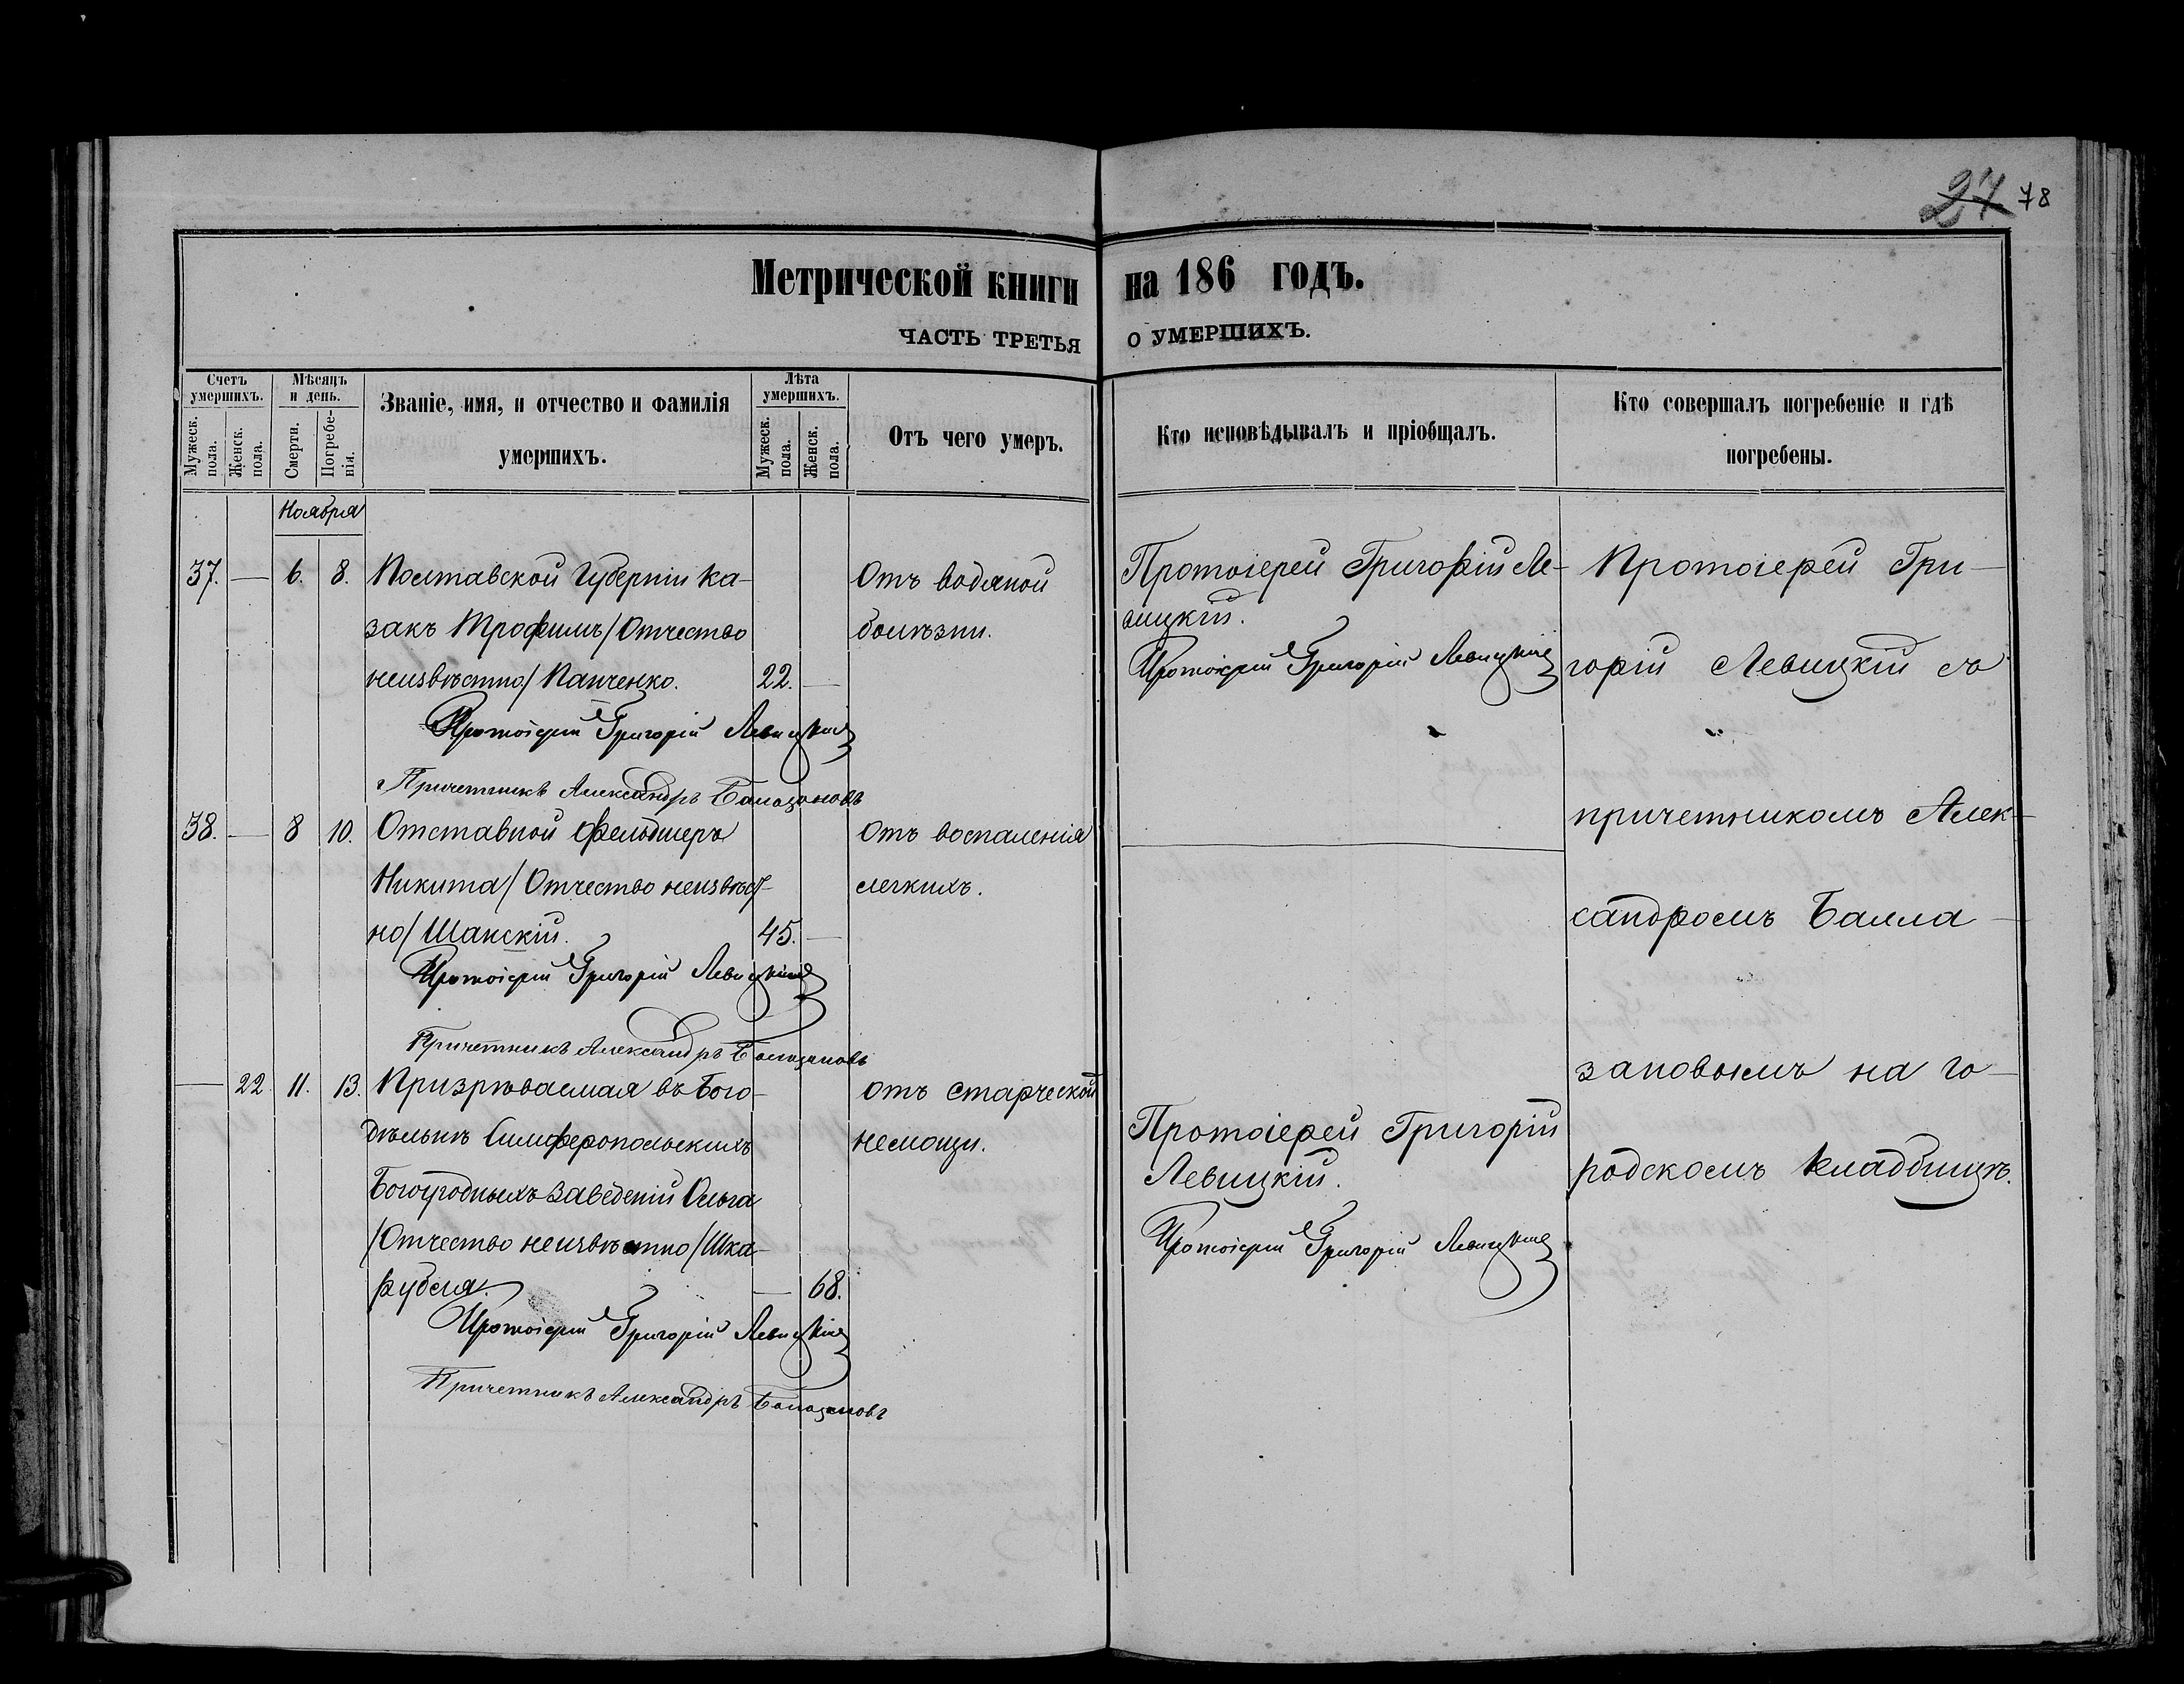 27 78
Метрической книги на 186 годъ.
ЧАСТЬ ТРЕТЬЯ О УМЕРШИХЪ.
Счетъ умершихъ.
Мужеск. пола.
Женск. пола.
Мѣсяцъ и день.
Смерти.
Погребе-нія.
Званіе, имя, и отчество и фамилія
умершихъ.
Лѣта умершихъ.
Мужеск. пола.
Женск. пола.
Отъ чего умеръ.
Кто исповѣдывалъ и пріобщалъ.
Кто совершалъ погребеніе и гдѣ
погребены.
Ноября
37. — 6. 8. Полтавской Губерніи ка-
закъ Трофимъ /Отчество
неизвѣстно/ Панченко. 22. —
Отъ водяной
болѣзни.
Протоіерей Григорій Ле-
вицкій.
Протоіерей Григорій Левицкій
Протоіерей Григорій Левицкій
Причетникъ Александръ Баллазановъ
38. — 8 10. Отставной Фельдшеръ
Никита /Отчество неизвѣст-
но/ Шанскій. 45. —
Отъ воспаленія
легкихъ.
Протоіерей Григорій Левицкій
Причетникъ Александръ Баллазановъ
— 22. 11. 13. Призрѣваемая въ Бого-
дѣльнѣ Симферопольскихъ
Богоугодныхъ Заведеній Ольга
/Отчество неизвѣстно/ Шка-
рубеля. — 68.
отъ старческой
немощи.
Протоіерей Григорій
Левицкій.
Протоіерей Григорій Левицкій
Протоіерей Григорій Левицкій
Причетникъ Александръ Баллазановъ
Протоіерей Гри-
горій Левицкій съ
причетникомъ Алек-
сандромъ Балла-
зановымъ на го-
родскомъ кладбищѣ.